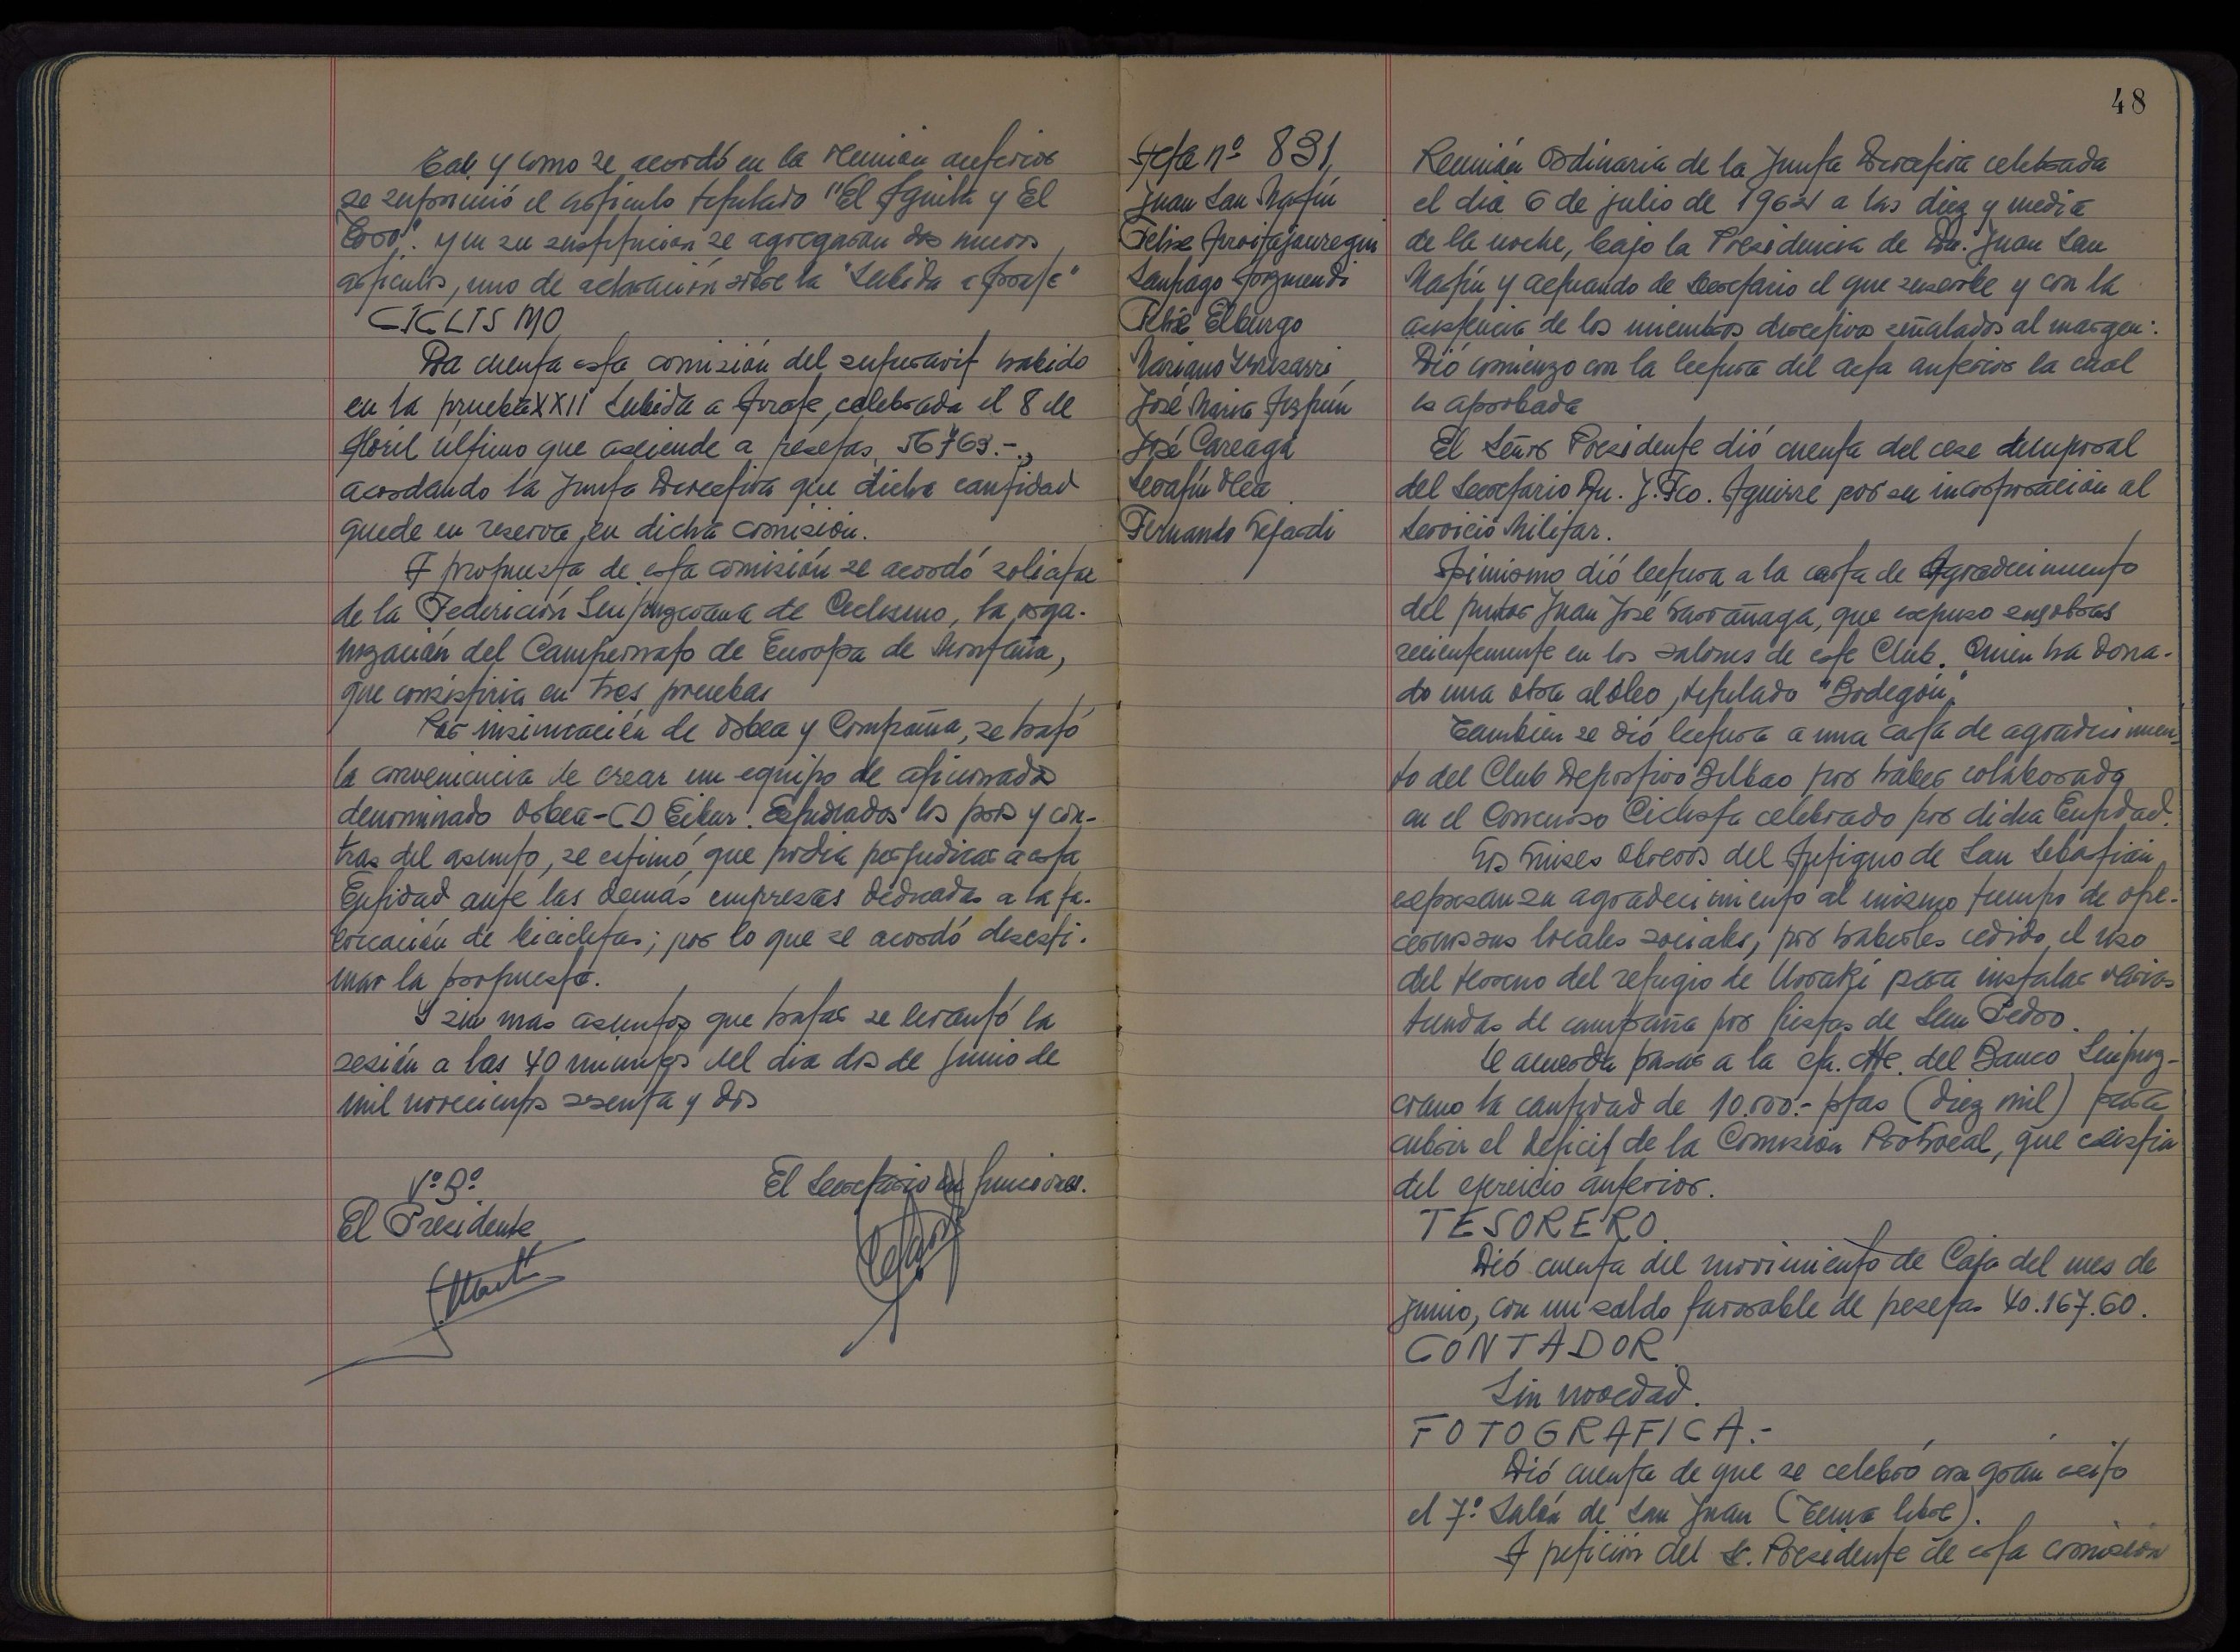 Tal, y como se acordó en la reunión anterior
se suprimió el artículo titulado "El Aguila y El
Toro". y en su sustitución se agregaran dos nuevos
artículos, uno de aclaración sobre la "Subida a Arrate"
CICLISMO
Da cuenta esta comisión del superavit habido
en la prueba XXII Subida a Arrate, celebrada el 8 de
Abril ultimo que asciende a pesetas, 56769.-,
acordando la Junta Directiva que dicha cantidad
quede en reserva en dicha comisión.
A propuesta de esta comisión se acordó solicitar
de la Federición Guipuzcoana de Ciclismo, la orga-
nización del Campeonato de Europa de Montaña,
que consistiria en tres pruebas
Por insinuación de Orbea y Compañia, se trató
la conveniencia de crear un equipo de aficionados
denominado Orbea-CD Eibar. Estudiados los pros y con-
tras del asunto, se estimó, que podia perjudicar a esta
Entidad ante las demás empresas dedicadas a la fa-
bricación de bicicletas; por lo que se acordó desesti-
mar la propuesta.
Y sin mas asuntos que tratar se levantó la
sesión a las 40 minutos del dia dos de Junio de
mil novecientos sesenta y dos
Vº Bº
El Presidente
El Secretario en funciones.
48
Acta nº 831,
Juan San Martín
Felix Arroitajauregui
Santiago Arizmendi
Felix Elburgo
Mariano Irrizarri
José Maria Azpún
José Careaga
Serafín Olea
Fernando Tefardi
Reunión Ordinaria de la Junta Directiva celebrada
el dia 6 de julio de 1962 a las diez y media
de la noche, bajo la Presidencia de Dn. Juan San
Martín y actuando de Secretario el que suscribe y con la
asistencia de los miembros directivos señalados al margen:
Dió comienzo con la lectura del acta anterior la cual
es aprobada
El Señor Presidente dió cuenta del cese temporal
del Secretario Dn. J. Fco. Aguirre por su incorporación al
Servicio Militar.
Asimismo dió lectura a la carta de Agradecimiento
del pintor Juan José Barrañaga, que expuso sus obras
recientemente en los salones de este Club. Quien ha dona-
do una obra al óleo, titulado "Bodegón"
También se dió lectura a una carta de agradecimien-
to del Club Deportivo Bilbao por haber colaborado
en el Concurso Ciclista celebrado por dicha Entidad.
Los Luises Obreros del Antiguo de San Sebastián
expresan su agradecimiento al mismo tiempo de ofre-
cernos sus locales sociales, por haberles cedido el uso
del terreno del refugio de Urraki para instalar varias
tiendas de campaña por fiestas de San Pedro.
Se acuerda pasar a la cta. cte. del Banco Guipuz-
coano la cantidad de 10.000.- ptas (diez mil) para
cubrir el deficit de la Comisión Protocal, que existia
del ejercicio anterior.
TESORERO.
Dió cuenta del movimiento de Caja del mes de
junio, con un saldo favorable de pesetas 40.167.60.
CONTADOR.
Sin novedad.
FOTOGRAFICA.-
Dió cuenta de que se celebró con gran éxito
el 7º Salón de San Juan (Tema libre).
A petición del Sr. Presidente de esta comisión